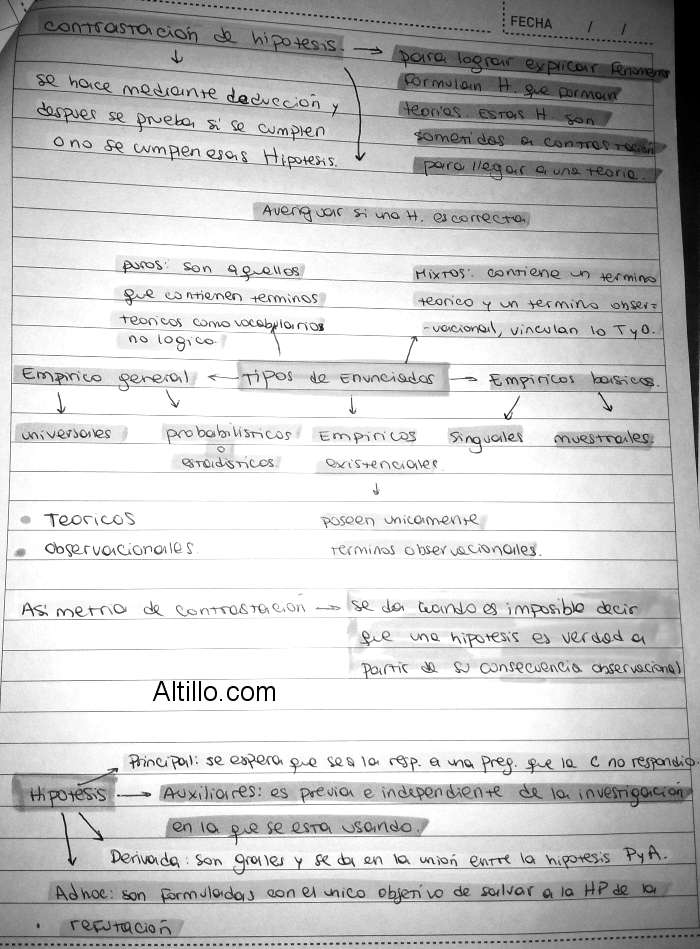 FECHA / /
contrastación de hipotesis. → para lograr explicar fenomenos
formulan H. que forman
se hace mediante deducción y
teorías. Estas H. son
despues se prueba si se cumplen
sometidas a contrastación
o no se cumplen esas Hipotesis.
para llegar a una teoria.
Averiguar si una H. es correcta
puros: son aquellos
que contienen terminos
teoricos como vocabularios
no logico.
Mixtos: contiene un termino
teorico y un termino obser-
-vacional, vinculan lo T y O.
Empirico general ← Tipos de Enunciados → Empiricos basicos.
universales
probabilisticos
o
estadisticos.
Empiricos
existenciales.
singuales
muestrales.
• Teoricos
poseen unicamente
• observacionales.
terminos observacionales.
Asimetria de contrastación → se da cuando es imposible decir
que una hipotesis es verdad a
partir de su consecuencia observacional
Altillo.com
Principal: se espera que sea la resp. a una preg. que la C no respondio.
Hipotesis → Auxiliares: es previa e independiente de la investigación
en la que se esta usando.
Derivada: son grales y se da en la unión entre la hipotesis P y A.
Adhoc: son formuladas con el unico objetivo de salvar a la HP de la
refutación